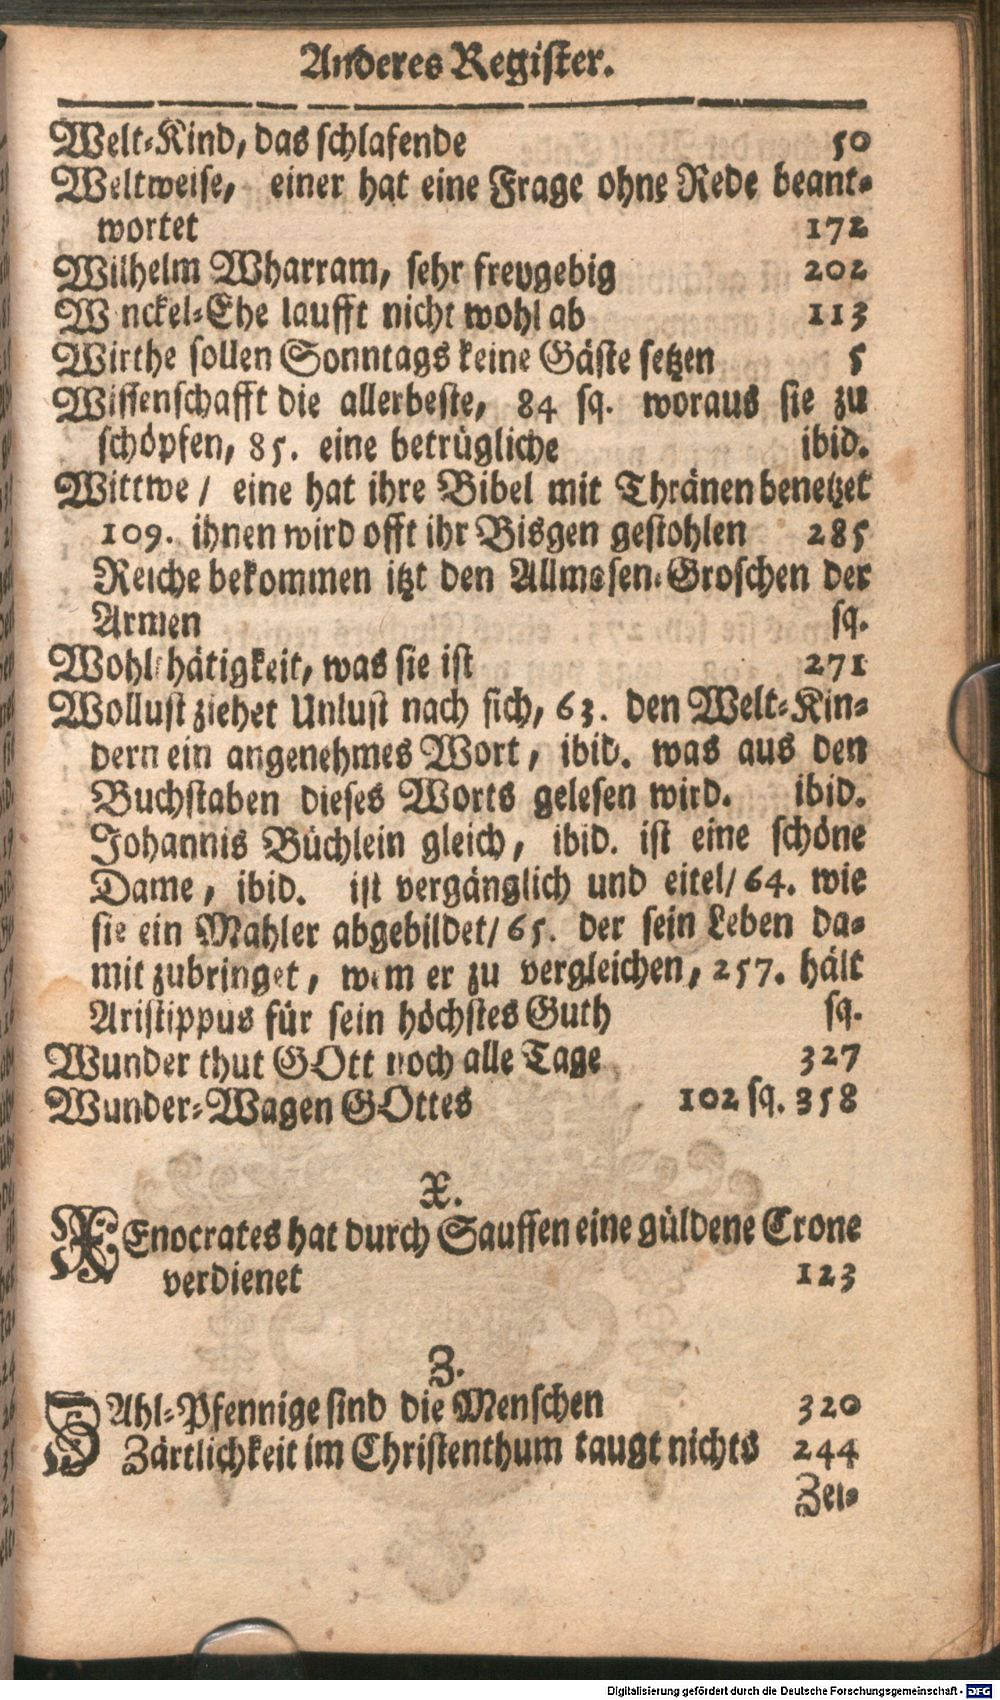 Anderes Register.
Welt-Kind, das schlafende 50
Weltweise, einer hat eine Frage ohne Rede beant-
wortet 172
Wilhelm Wharram, sehr freygebig 202
W nckel-Ehe laufft nicht wohl ab 113
Wirthe sollen Sonntags keine Gäste setzen 5
Wissenschafft die allerbeste, 84 sq. woraus sie zu
schöpfen, 85. eine betrügliche ibid.
Wittwe / eine hat ihre Bibel mit Thränen benetzet
109. ihnen wird offt ihr Bisgen gestohlen 285
Reiche bekommen itzt den Allmosen-Groschen der
Armen sq.
Wohlthätigkeit, was sie ist 271
Wollust ziehet Unlust nach sich, 63. den Welt-Kin-
dern ein angenehmes Wort, ibid. was aus den
Buchstaben dieses Worts gelesen wird. ibid.
Johannis Büchlein gleich, ibid. ist eine schöne
Dame, ibid. ist vergänglich und eitel/ 64. wie
sie ein Mahler abgebildet/ 65. der sein Leben da-
mit zubringet, wem er zu vergleichen, 257. hält
Aristippus für sein höchstes Guth sq.
Wunder thut GOtt noch alle Tage 327
Wunder-Wagen GOttes 102 sq. 358
X.
XEnocrates hat durch Sauffen eine güldene Crone
verdienet 123
Z.
ZAhl-Pfennige sind die Menschen 320
Zärtlichkeit im Christenthum taugt nichts 244
Zei-
Digitalisierung gefördert durch die Deutsche Forschungsgemeinschaft - DFG